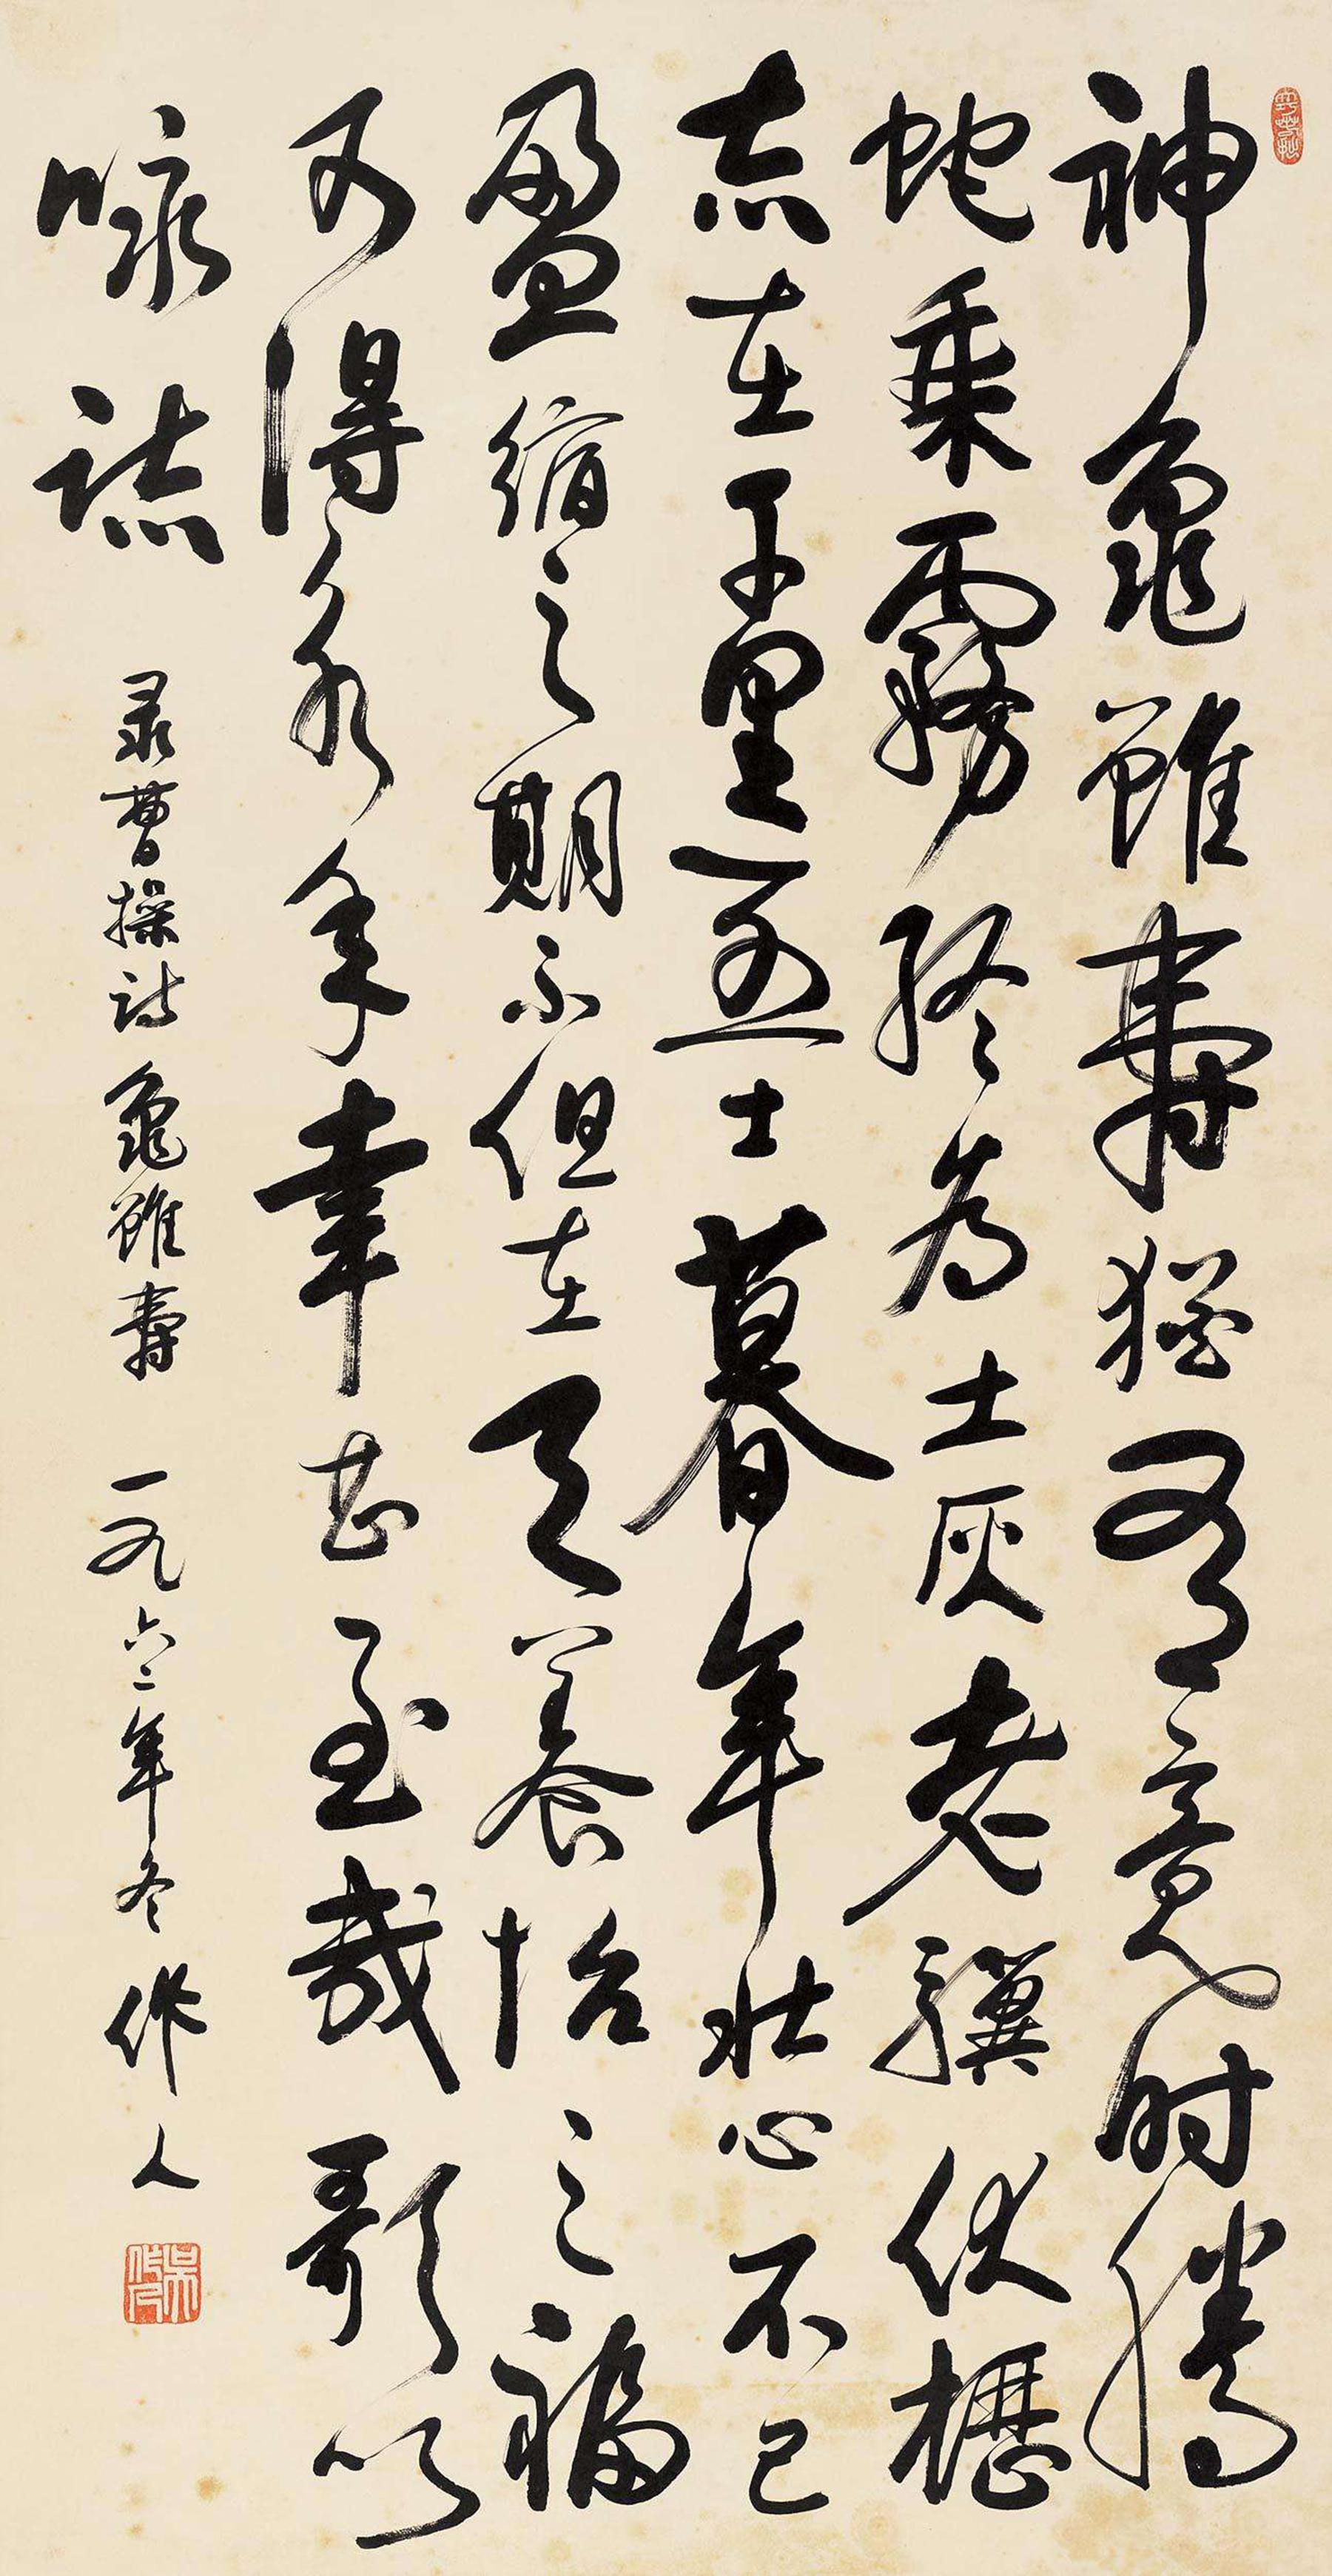 神龜雖壽猶有竟时騰
蛇乘霧終为土灰老驥伏櫪
志在千里烈士暮年壯心不已
盈縮之期不但在天養怡之福
可得永年幸甚至哉歌以
咏誌 录曹操诗龜雖壽 一九六二年冬 作人
吳作人